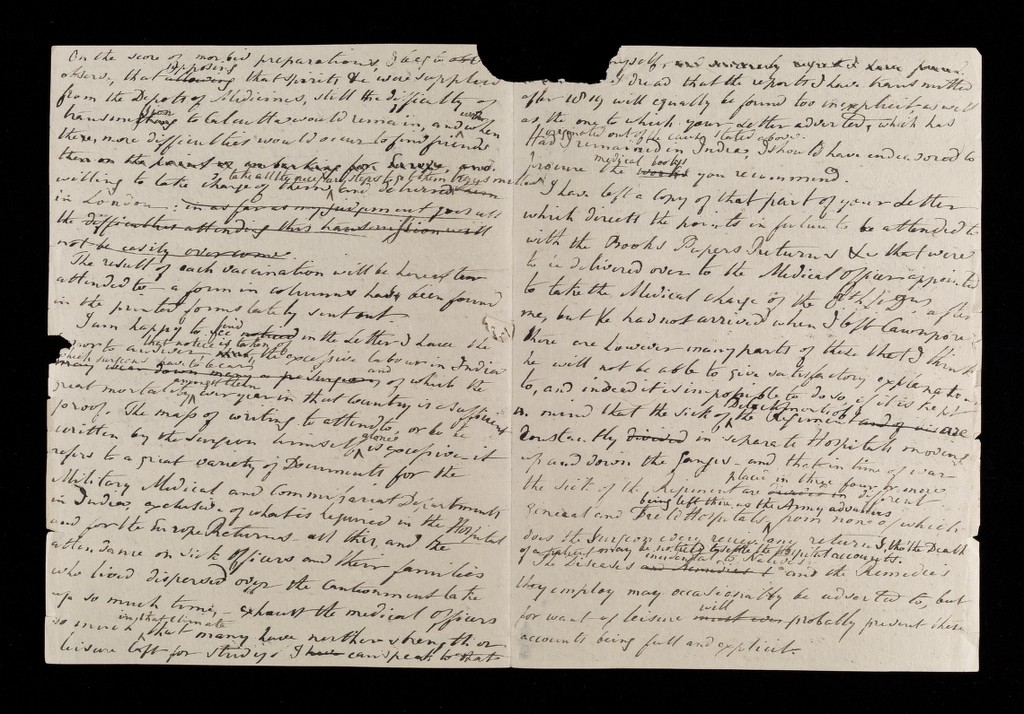 On the score of morbid preparations I beg to
observe, that supposing allowing that spirits &c were supplied
from the Depots of Medicines, still the difficulty of
transmission to Calcutta would remain, and when
there, more difficulties would occur to find friends
them on the embarking for Europe, and
willing to take charge of them, and take all the necessary steps to get them
in London: in as far as my judgment goes all
the difficulties attending this transmission will
not be easily overcome
The result of each vaccination will be hereafter
attended to a form in columns having been found
in the printed forms lately sent out
I am happy to find see noticed in the Letter I have the
honor to answer that notice is taken of the excessive labour in India
which surgeons have to bear and of which the
great mortality amongst them every year in that Country is a sufficient
proof. The mass of writing to attend to, or be
written by the Surgeon himself alone is excessive – it
refers to a great variety of Documents for the
Military Medical and Commissariat Departments
in India, exclusive of what is required in the Hospital
and for the Europe Returns – all this, and the
attendance on sick officers and their families
who lived dispersed over the cantonment take
up so much time, – exhaust the medical officers
so much in that climate that many have neither strength or
leisure left for studies I have can speak to that
myself, and sincerely regretted
I dread that the reports I have transmitted
after 1819 will equally be found too inexplicit as well
as the one to which your Letter adverted, which has
emanated out of the cause stated above.
Had I remained in India, I should have endeavored to
procure the medical books works you recommend.
I have left a copy of that part of your Letter
which directs the points in future to be attended to
with the Books Papers Returns &c that were
to be delivered over to the Medical officer appointed
to take the Medical charge of the after
me, but he had not arrived when I left Cawnpore
there are however many parts of these that I think
he will not be able to give satisfactory explanation
to, and indeed it is impossible to do so, if it is kept
in mind that the sick of the Detachments of Regiment are
constantly divided in separate Hospitals moving
up and down the Ganges – and that in time of war
the sick of the Regiment are placed in three four or more different
General and Field Hospitals, being left there as the Army advances from none of which
does the Surgeon ever receive any return, tho' the Death
of a patient may be noticed to settle the Hospital accounts.
The Diseases incidental to Natives and Remedies & and the Remedies
they employ may occasionally be adverted to, but
for want of leisure will must ever probably prevent these
accounts being full and explicit.